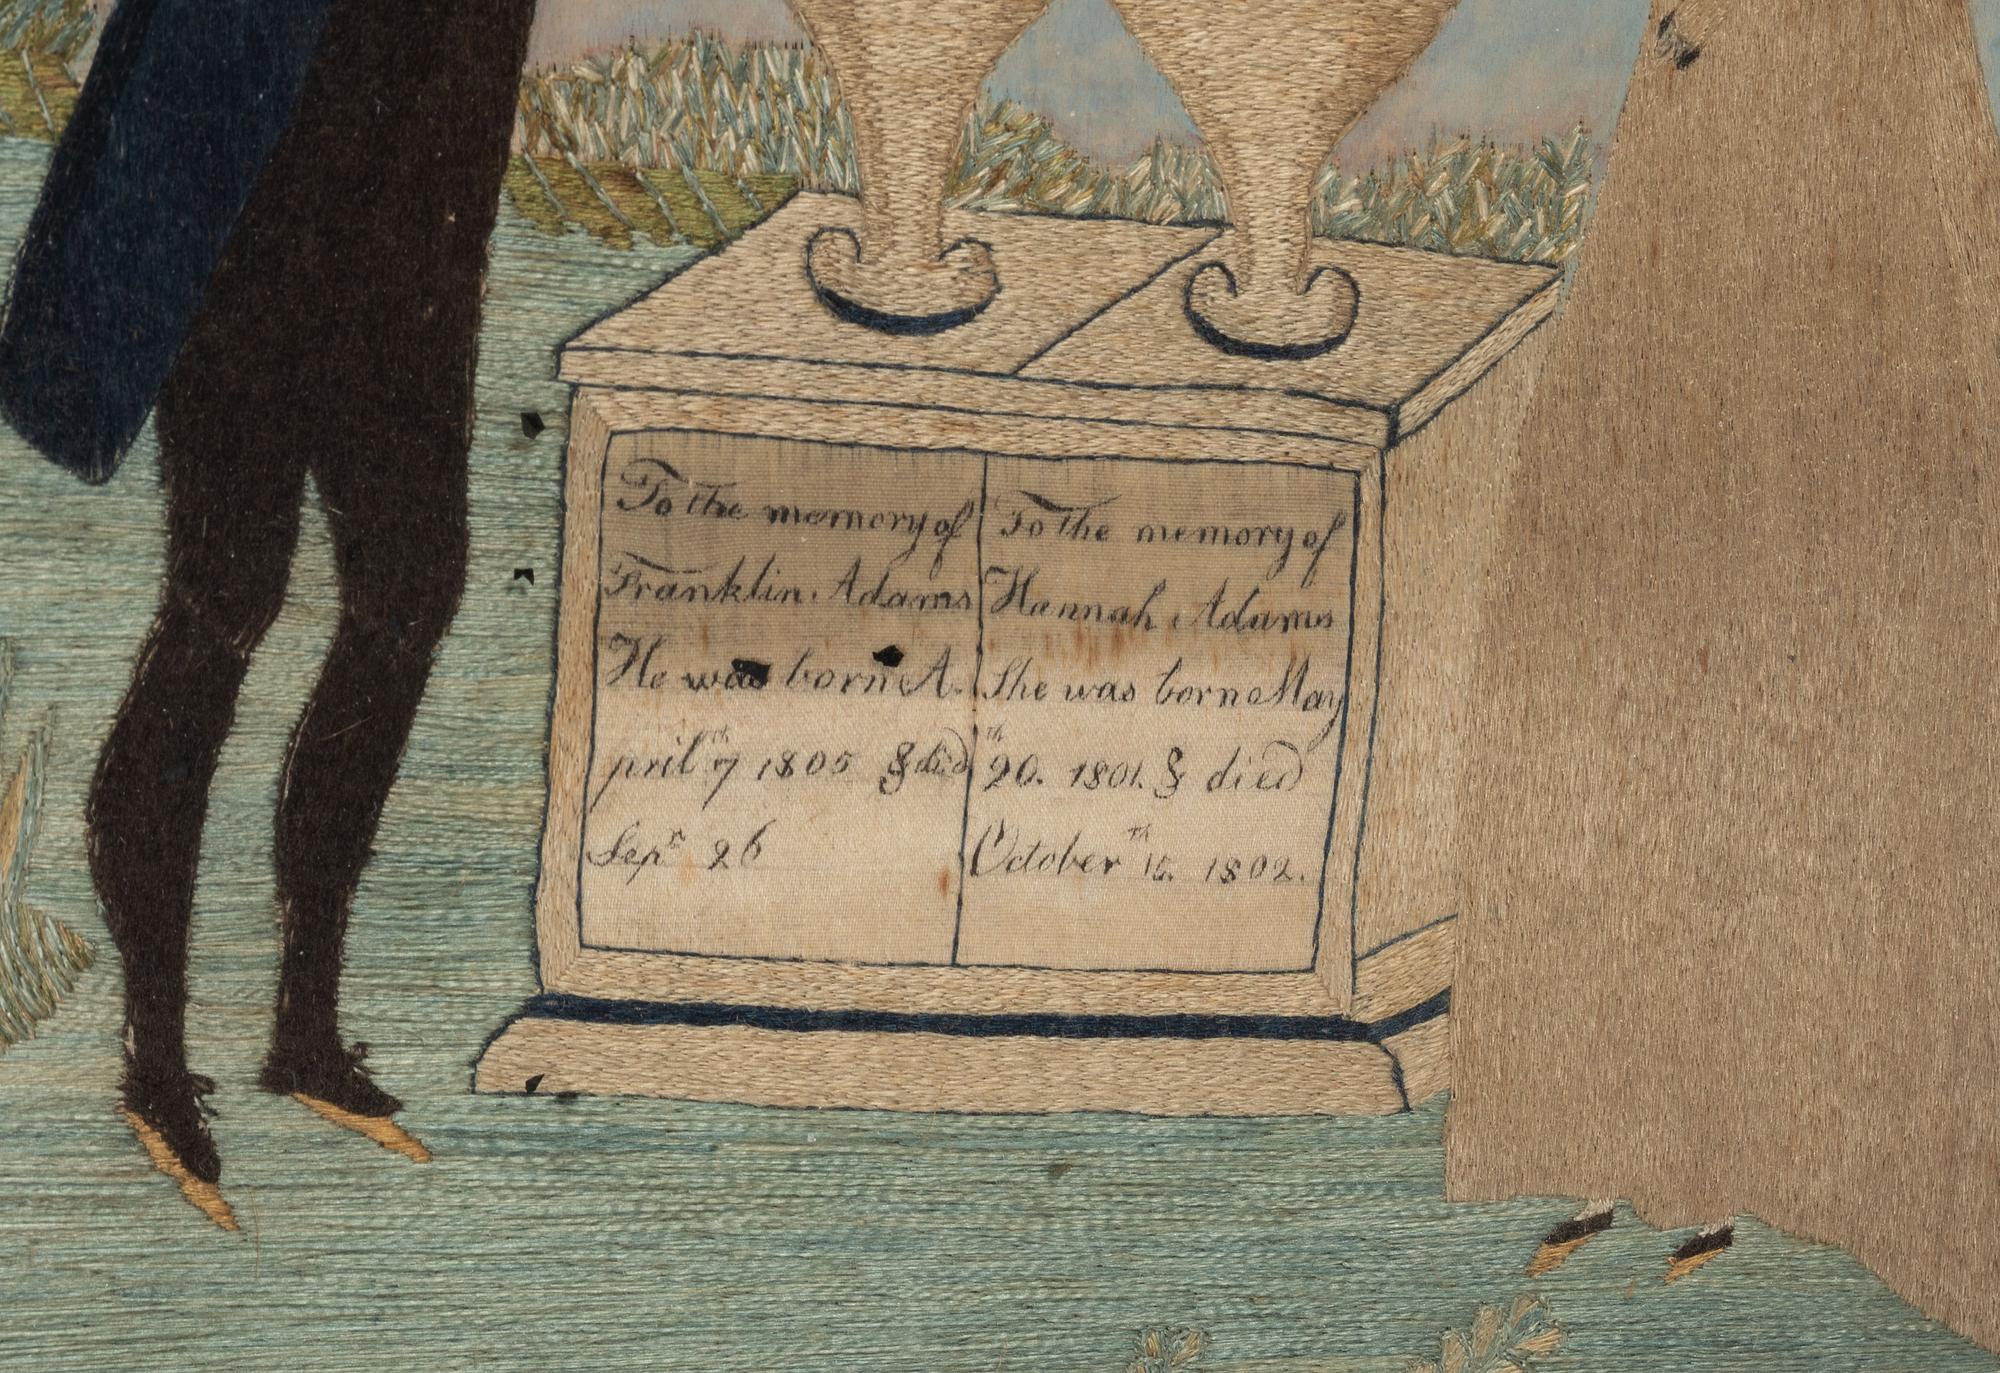 To the memory of
Franklin Adams
He was born A.
pril 7th 1805 & died
Sepr 26
To the memory of
Hannah Adams
She was born May
20.th 1801. & died
October 15.th 1802.